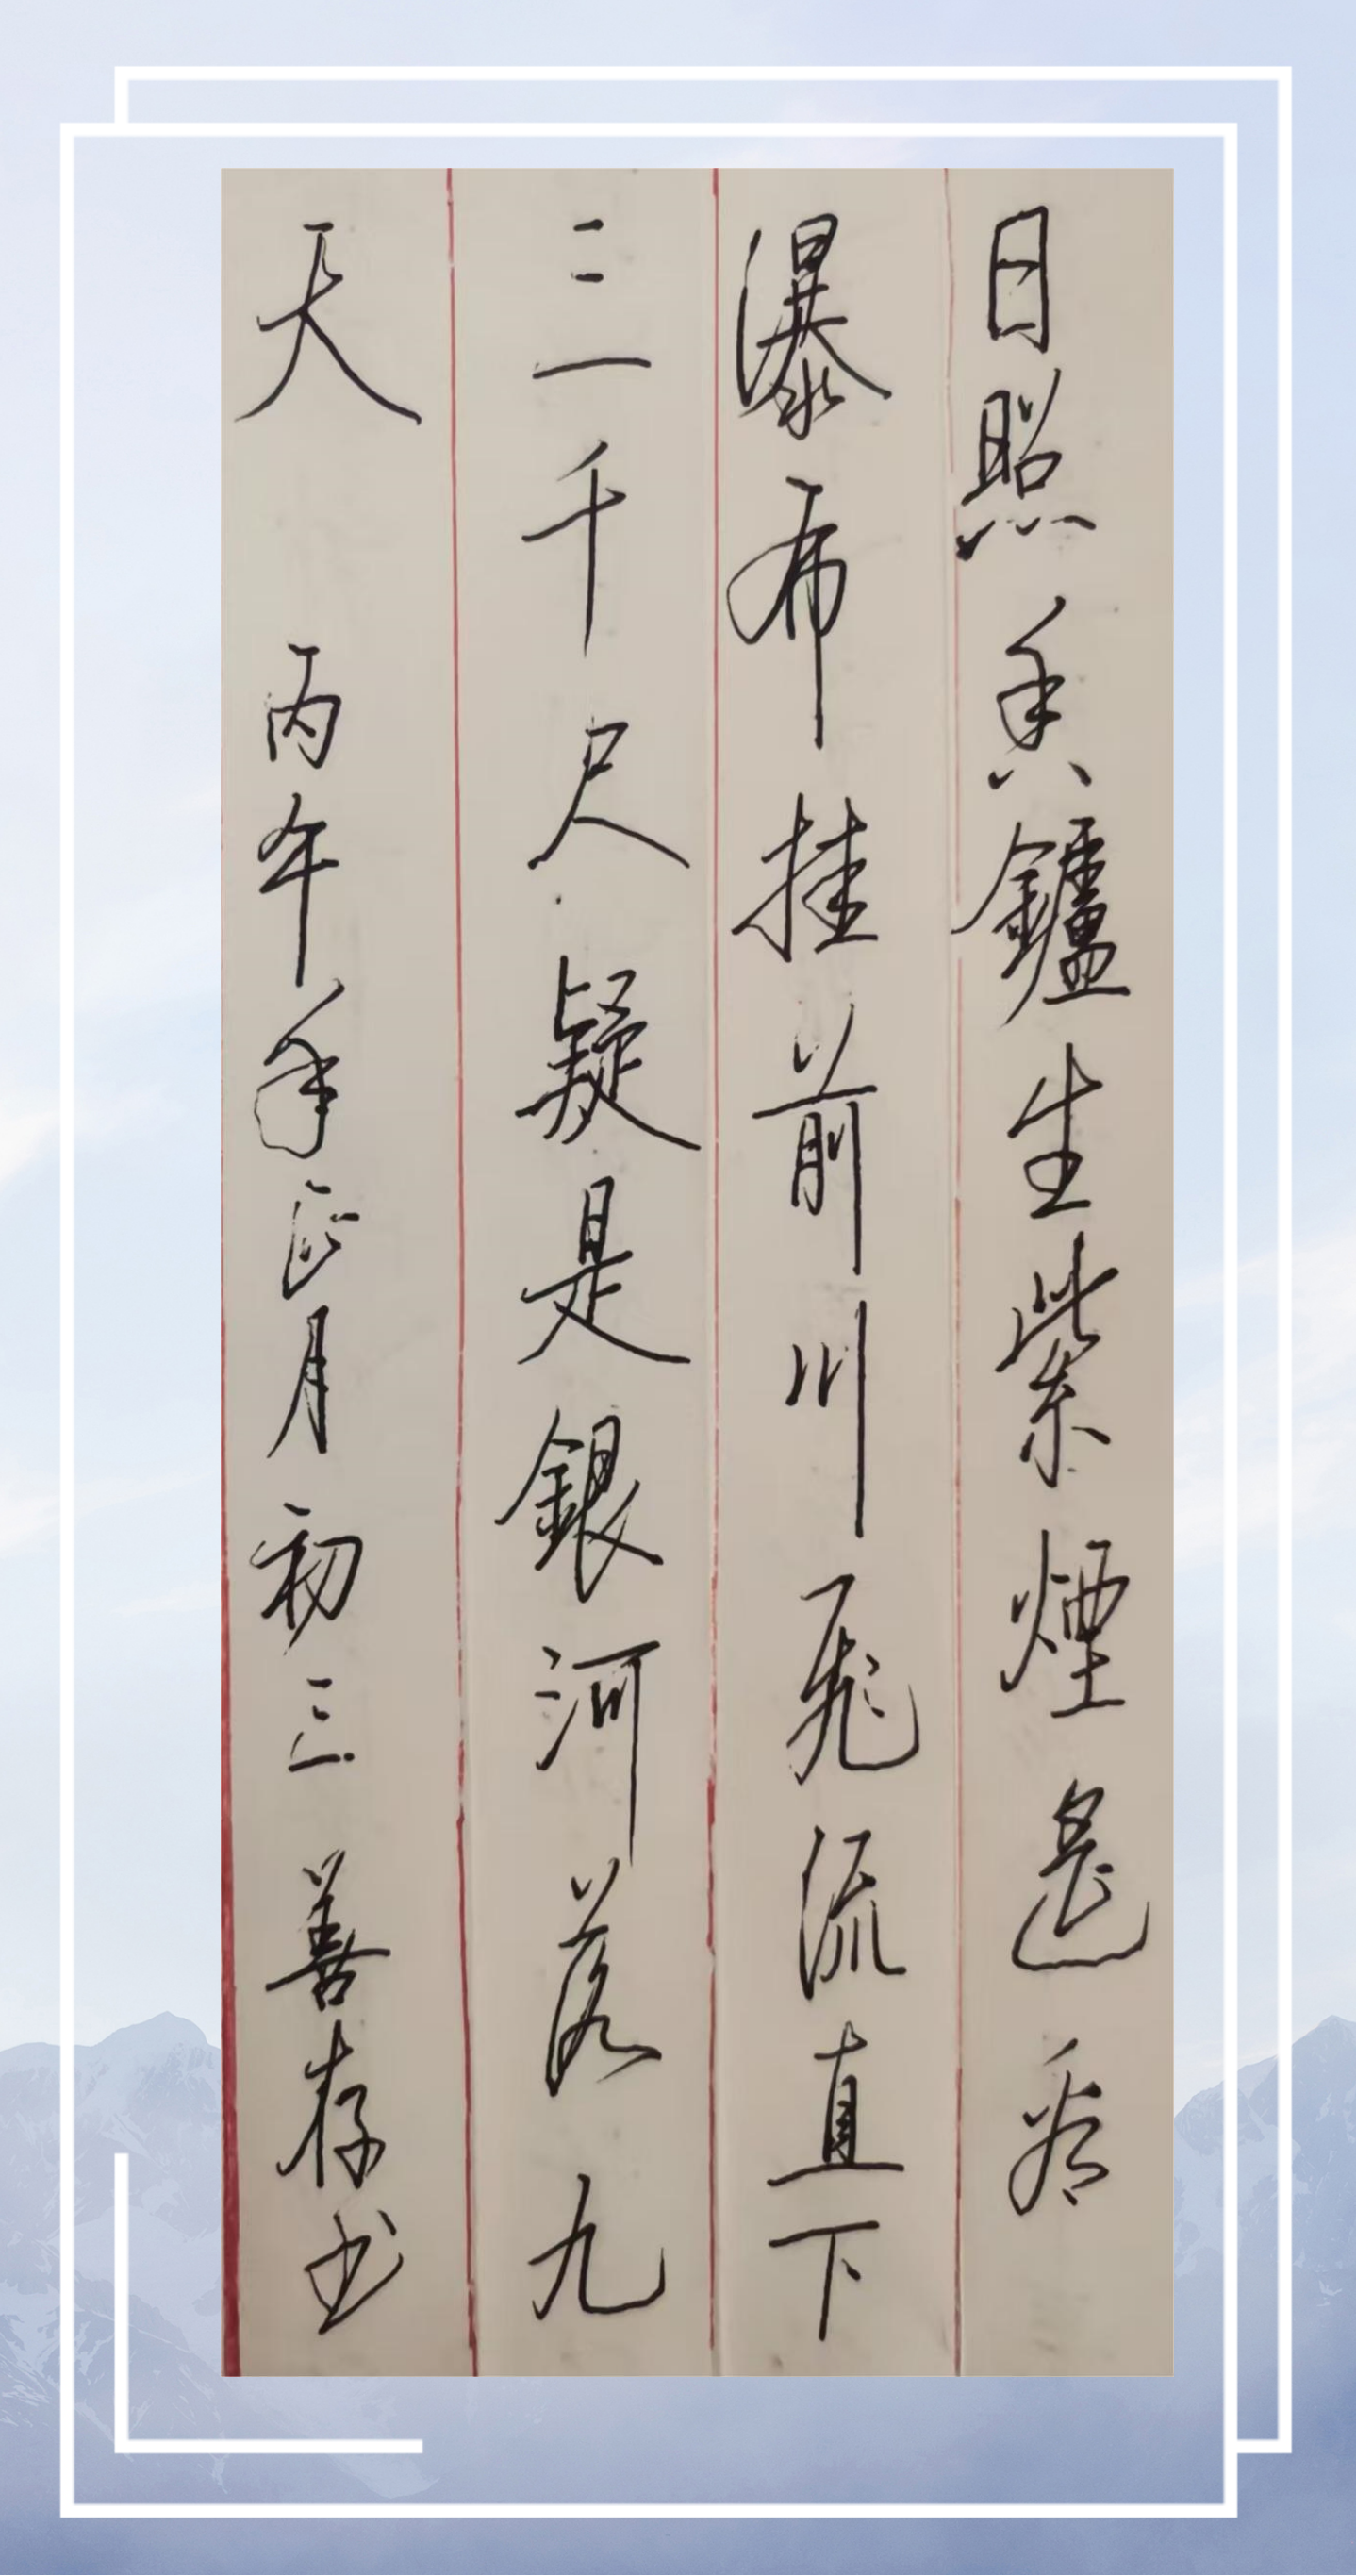 日照香鑪生紫煙遙看
瀑布挂前川飛流直下
三千尺疑是銀河落九
天 丙午年正月初三善存书